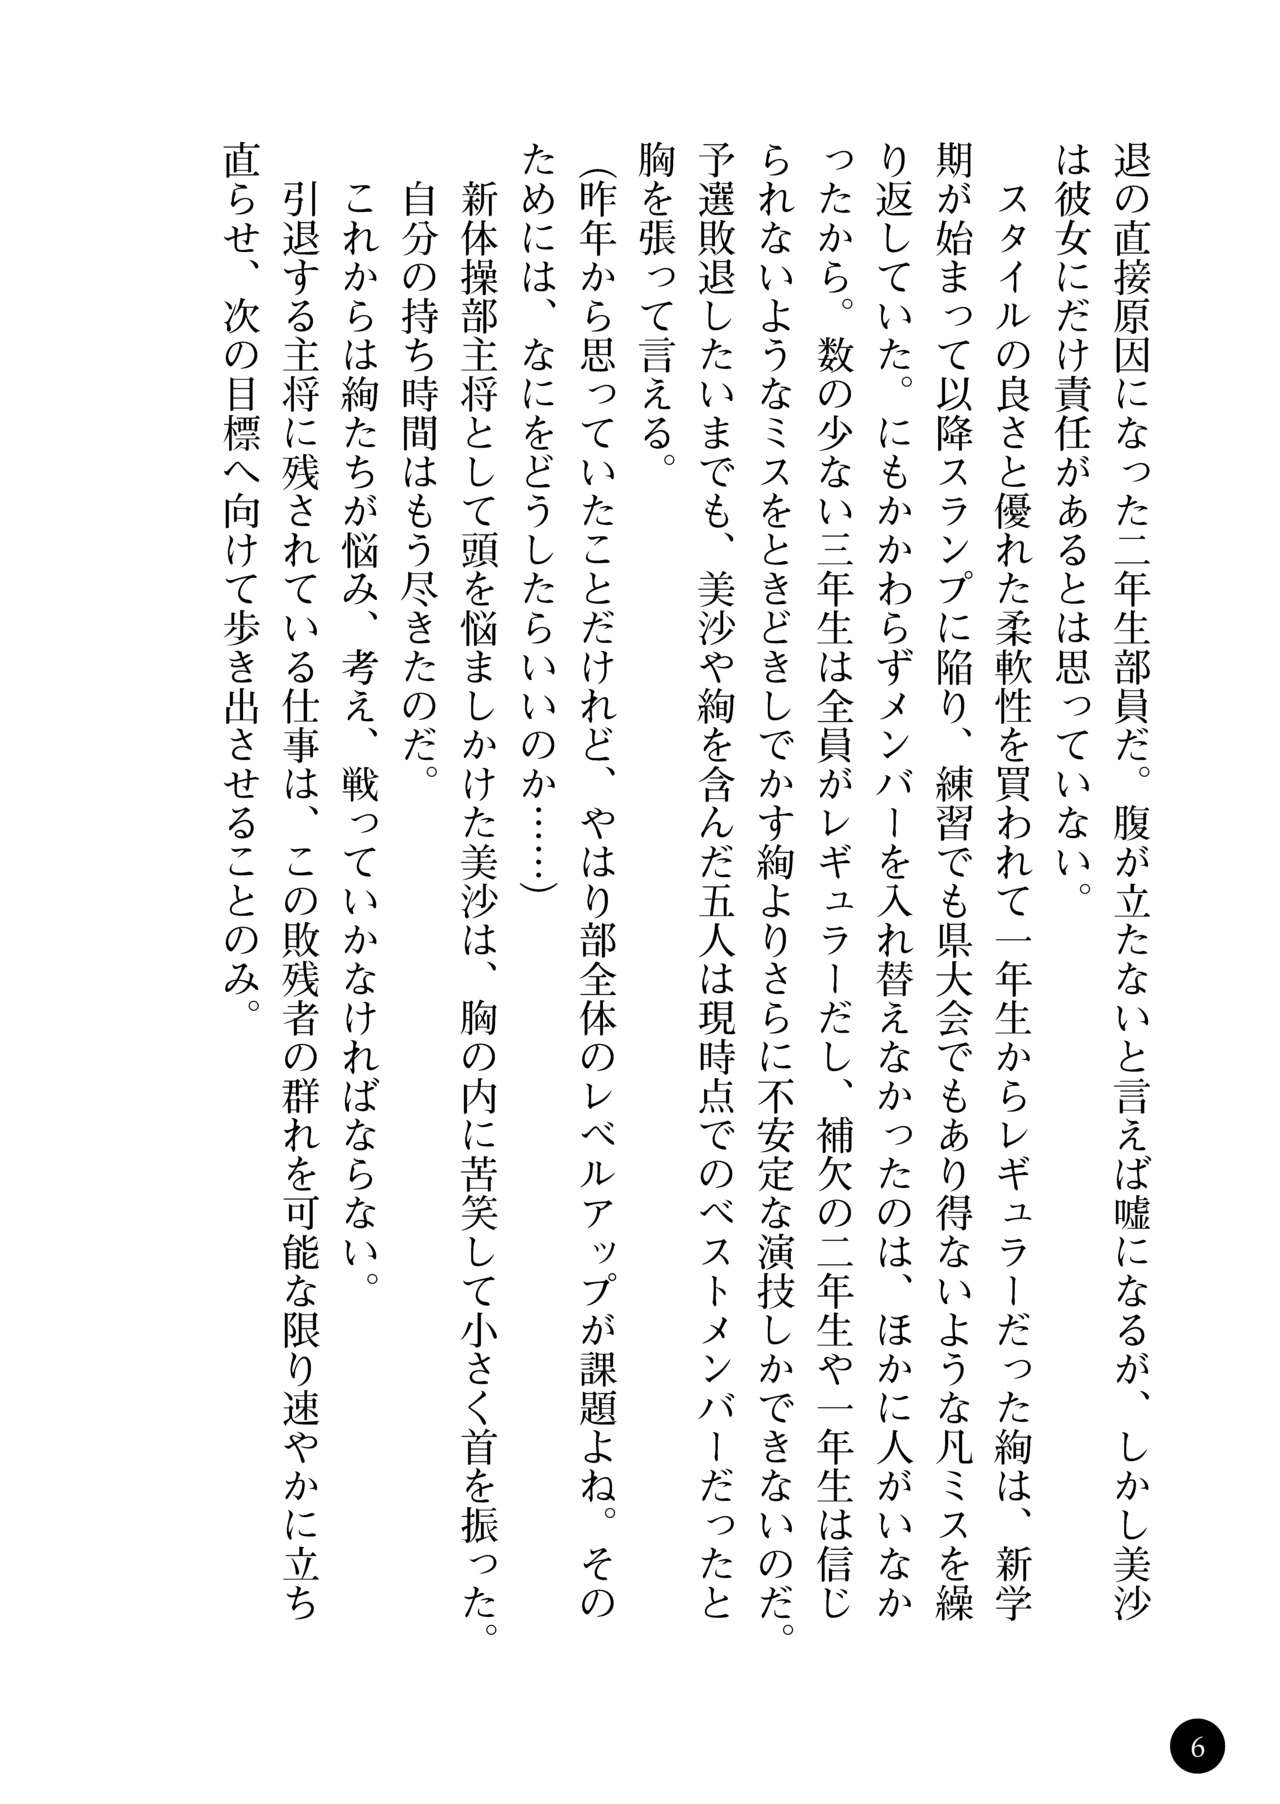 退の直接原因になった二年生部員だ。腹が立たないと言えば嘘になるが、しかし美沙
は彼女にだけ責任があるとは思っていない。
　スタイルの良さと優れた柔軟性を買われて一年生からレギュラーだった絢は、新学
期が始まって以降スランプに陥り、練習でも県大会でもあり得ないような凡ミスを繰
り返していた。にもかかわらずメンバーを入れ替えなかったのは、ほかに人がいなか
ったから。数の少ない三年生は全員がレギュラーだし、補欠の二年生や一年生は信じ
られないようなミスをときどきしでかす絢よりさらに不安定な演技しかできないのだ。
予選敗退したいまでも、美沙や絢を含んだ五人は現時点でのベストメンバーだったと
胸を張って言える。
（昨年から思っていたことだけれど、やはり部全体のレベルアップが課題よね。その
ためには、なにをどうしたらいいのか……）
　新体操部主将として頭を悩ましかけた美沙は、胸の内に苦笑して小さく首を振った。
　自分の持ち時間はもう尽きたのだ。
　これからは絢たちが悩み、考え、戦っていかなければならない。
　引退する主将に残されている仕事は、この敗残者の群れを可能な限り速やかに立ち
直らせ、次の目標へ向けて歩き出させることのみ。
6